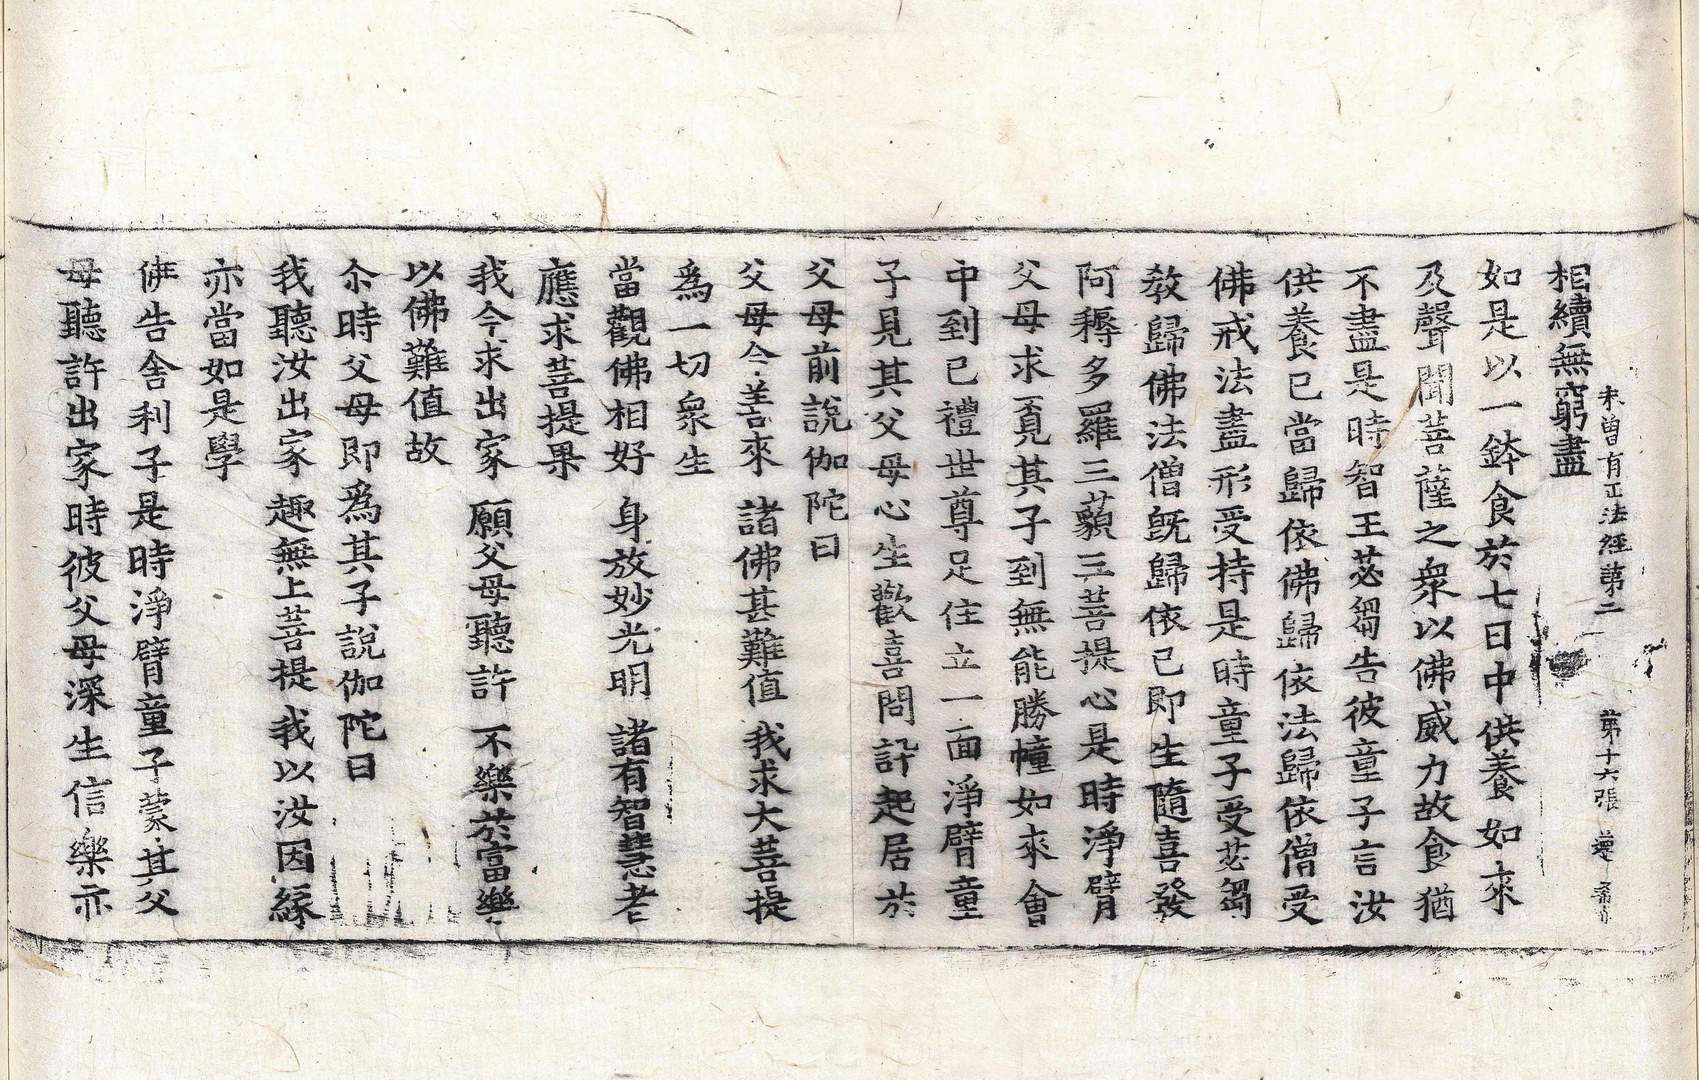 未曾有正法經第二 第十六張 遵
相續無窮盡
如是以一鉢食於七日中供養如來
及聲聞菩薩之衆以佛威力故食猶
不盡是時智王苾芻告彼童子言汝
供養已當歸依佛歸依法歸依僧受
佛戒法盡形受持是時童子受苾芻
教歸佛法僧既歸依已即生隨喜發
阿耨多羅三藐三菩提心是時淨臂
父母求覓其子到無能勝幢如來會
中到已禮世尊足住立一面淨臂童
子見其父母心生歡喜問訊起居於
父母前說伽陀曰
父母今善來 諸佛甚難值 我求大菩提
爲一切衆生
當觀佛相好 身放妙光明 諸有智慧者
應求菩提果
我今求出家 願父母聽許 不樂於富樂
以佛難值故
尒時父母即爲其子說伽陀曰
我聽汝出家 趣無上菩提 我以汝因縁
亦當如是學
佛告舍利子是時淨臂童子蒙其父
母聽許出家時彼父母深生信樂亦